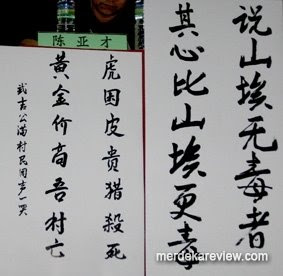 陈亚才
说山埃无毒者
其心比山埃更毒
虎因皮貴猎殺死
黄金价高吾村亡
武吉公满村民同声一哭
merdekareview.com